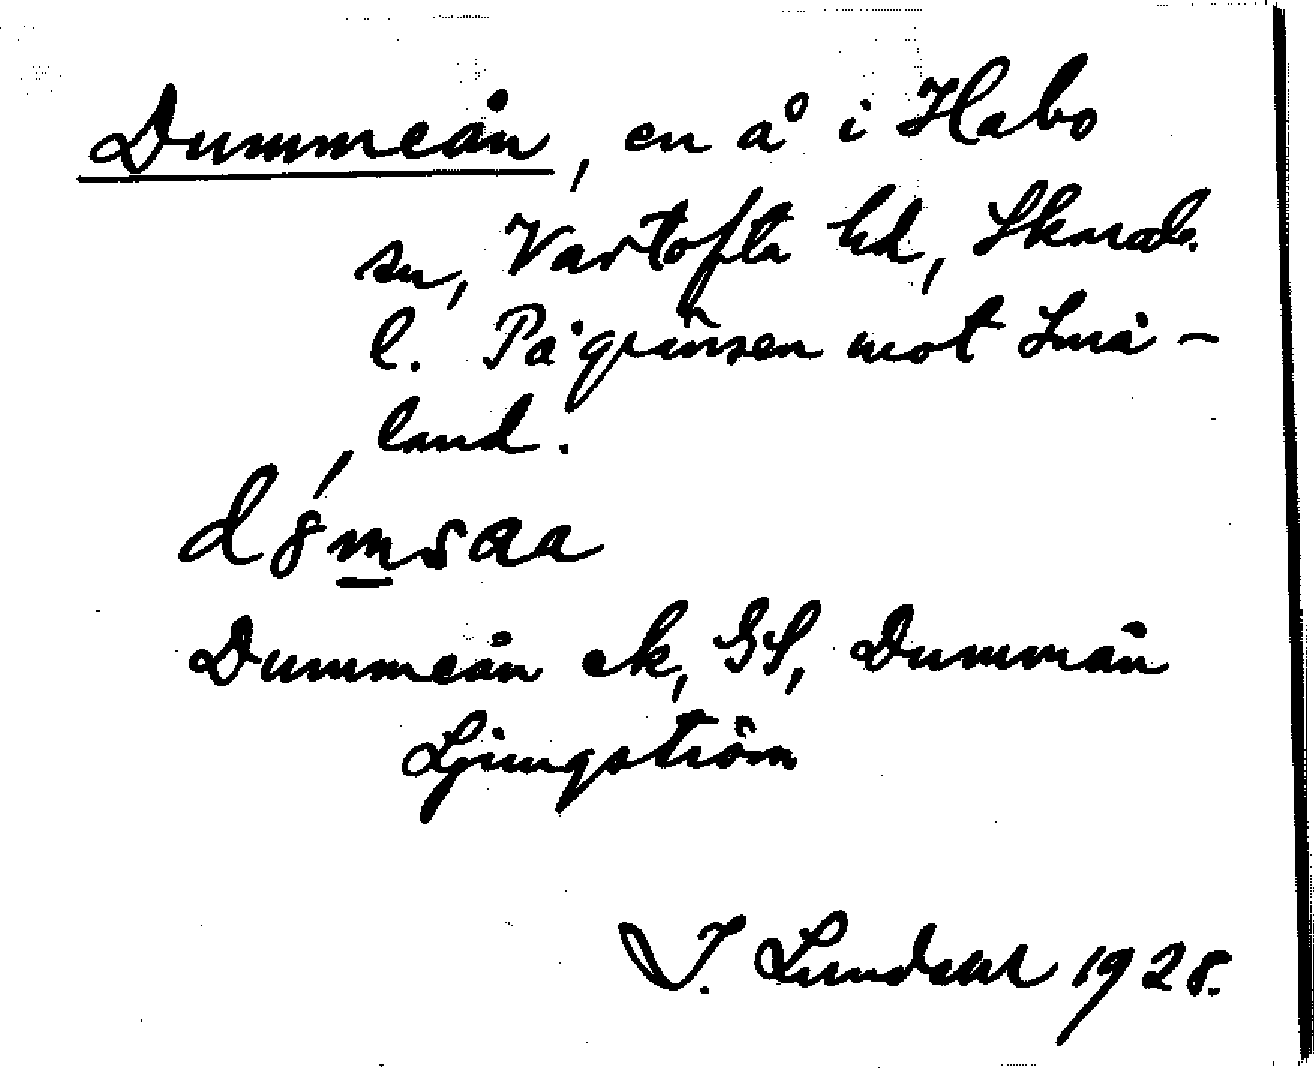 Dummeån, en å i Habo
sn, Vartofta hd, Skarab.
l. På gränsen mot Små-
land.
Dummeån ek, GS, Dummån
Ljungström
J. Lundahl 1928.